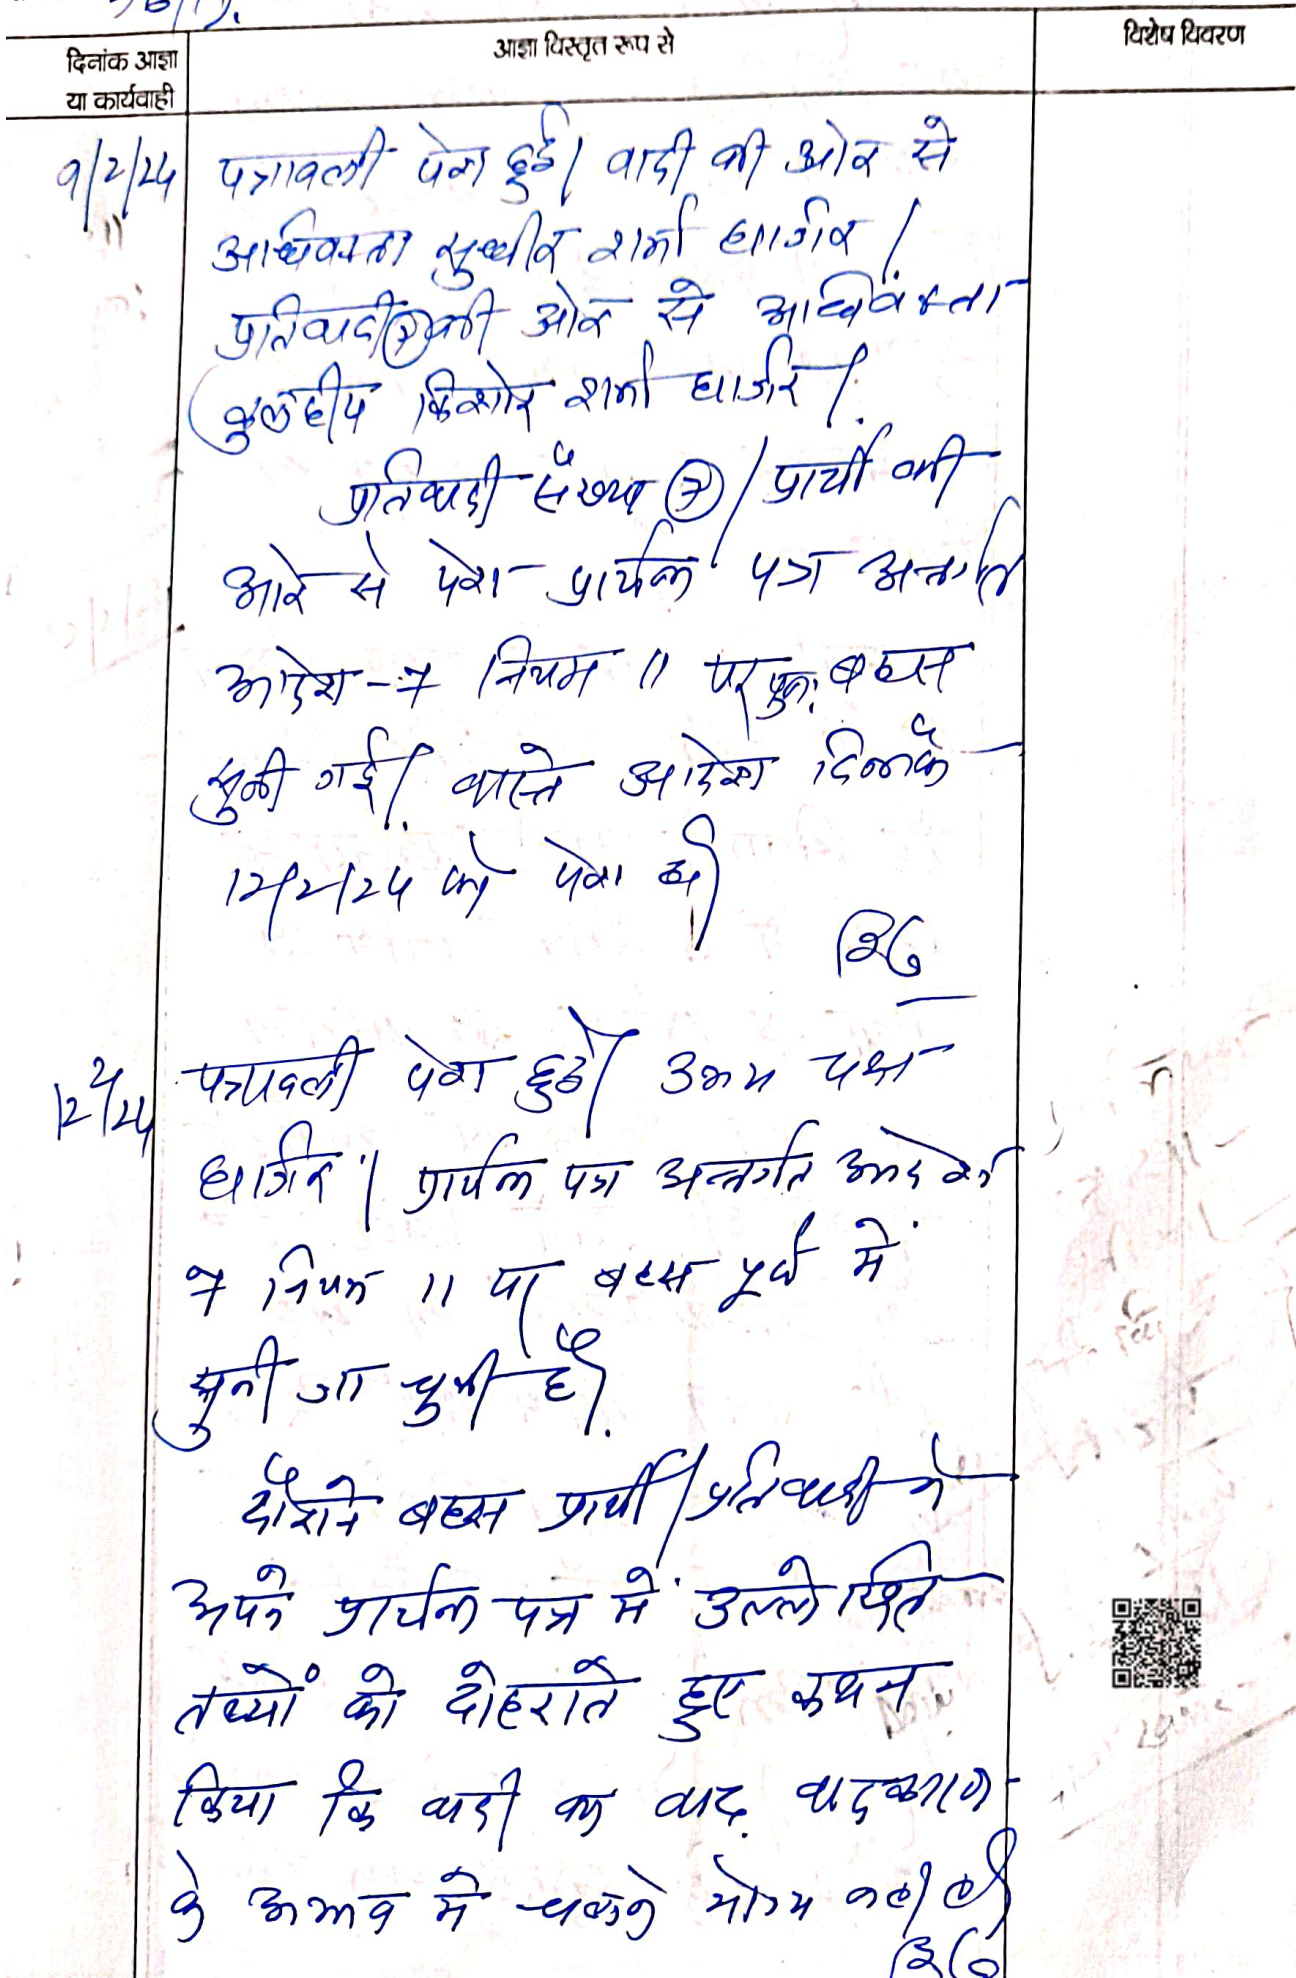 दिनांक आज्ञा
या कार्यवाही
आज्ञा विस्तृत रूप से
विशेष विवरण
9/2/24
पत्रावली पेश हुई। वादी की ओर से
अधिवक्ता सुधीर शर्मा हाजिर।
प्रतिवादी ⑦ की ओर से अधिवक्ता
कुलदीप किशोर शर्मा हाजिर।
प्रतिवादी संख्या ⑦ / प्रार्थी की
ओर से पेश प्रार्थना पत्र अन्तर्गत
आदेश-7 नियम 11 पर पुनः बहस
सुनी गई। वास्ते आदेश दिनांक
12/2/24 को पेश हो।
12/2/24
पत्रावली पेश हुई। उभय पक्ष
हाजिर। प्रार्थना पत्र अन्तर्गत आदेश
7 नियम 11 पर बहस पूर्व में
सुनी जा चुकी है।
दौराने बहस प्रार्थी/प्रतिवादी ने
अपने प्रार्थना पत्र में उल्लेखित
तथ्यों को दोहराते हुए कथन
किया कि वादी का वाद वादकारण
के अभाव में चलने योग्य नहीं है।